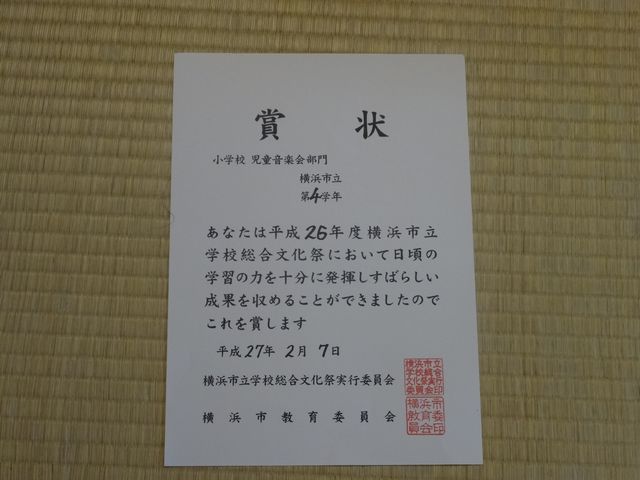 賞状
小学校 児童音楽会部門
横浜市立
第4学年
あなたは平成26年度横浜市立
学校総合文化祭において日頃の
学習の力を十分に発揮しすばらしい
成果を収めることができましたので
これを賞します
平成27年2月7日
横浜市立学校総合文化祭実行委員会
横浜市教育委員会
横浜市立
学校総合
文化祭実行
委員会印
横浜市
教育委
員会印